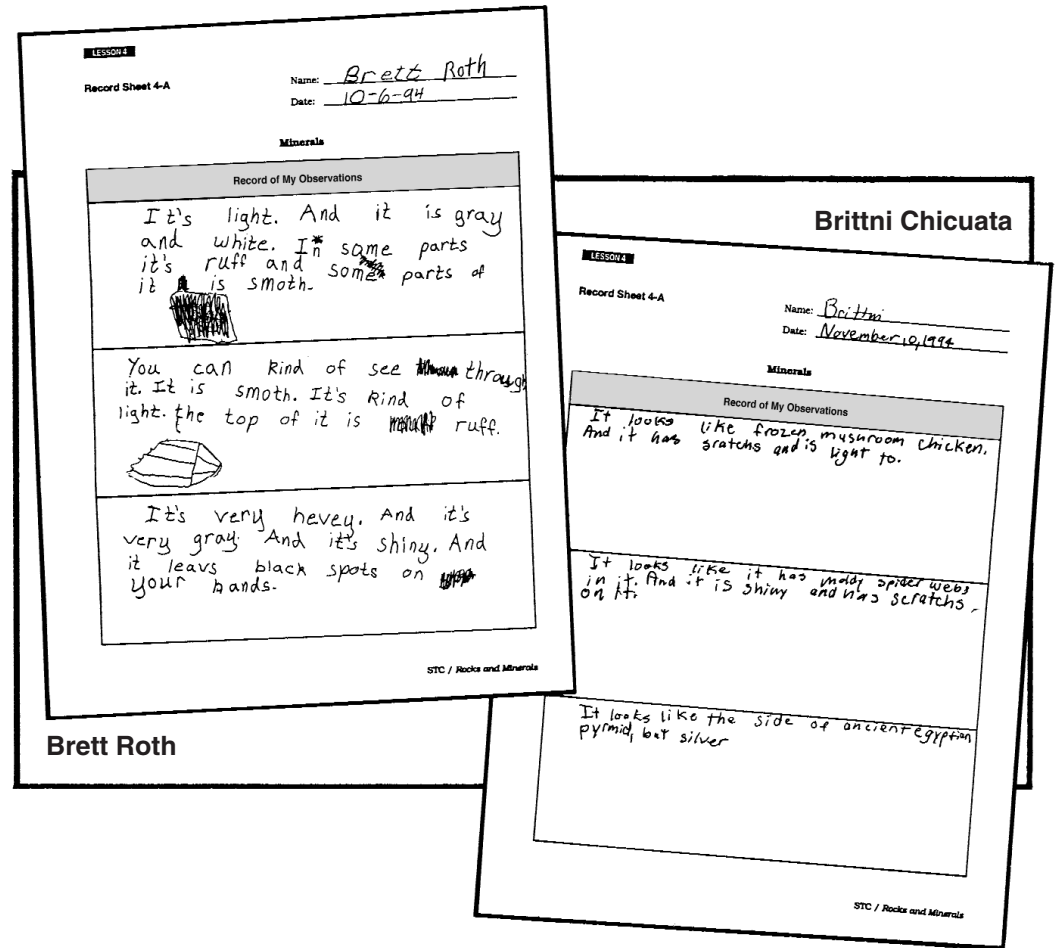 LESSON 4
Record Sheet 4-A
Name: Brett Roth
Date: 10-6-94
Minerals
Record of My Observations
It's light. And it is gray
and white. In some parts
it's ruff and some parts of
it is smoth.
You can kind of see through
it. It is smoth. It's kind of
light. the top of it is ruff.
It's very hevey. And it's
very gray. And it's shiny. And
it leavs black spots on
your hands.
STC / Rocks and Minerals
Brett Roth
Brittni Chicuata
LESSON 4
Record Sheet 4-A
Name: Brittni
Date: November 10, 1994
Minerals
Record of My Observations
It looks like frozen mushroom chicken.
And it has sratchs and is light to.
It looks like it has moldy spider webs
in it. And it is shiny and has scratchs
on it.
It looks like the side of ancient egyption
pyrmid, but silver
STC / Rocks and Minerals